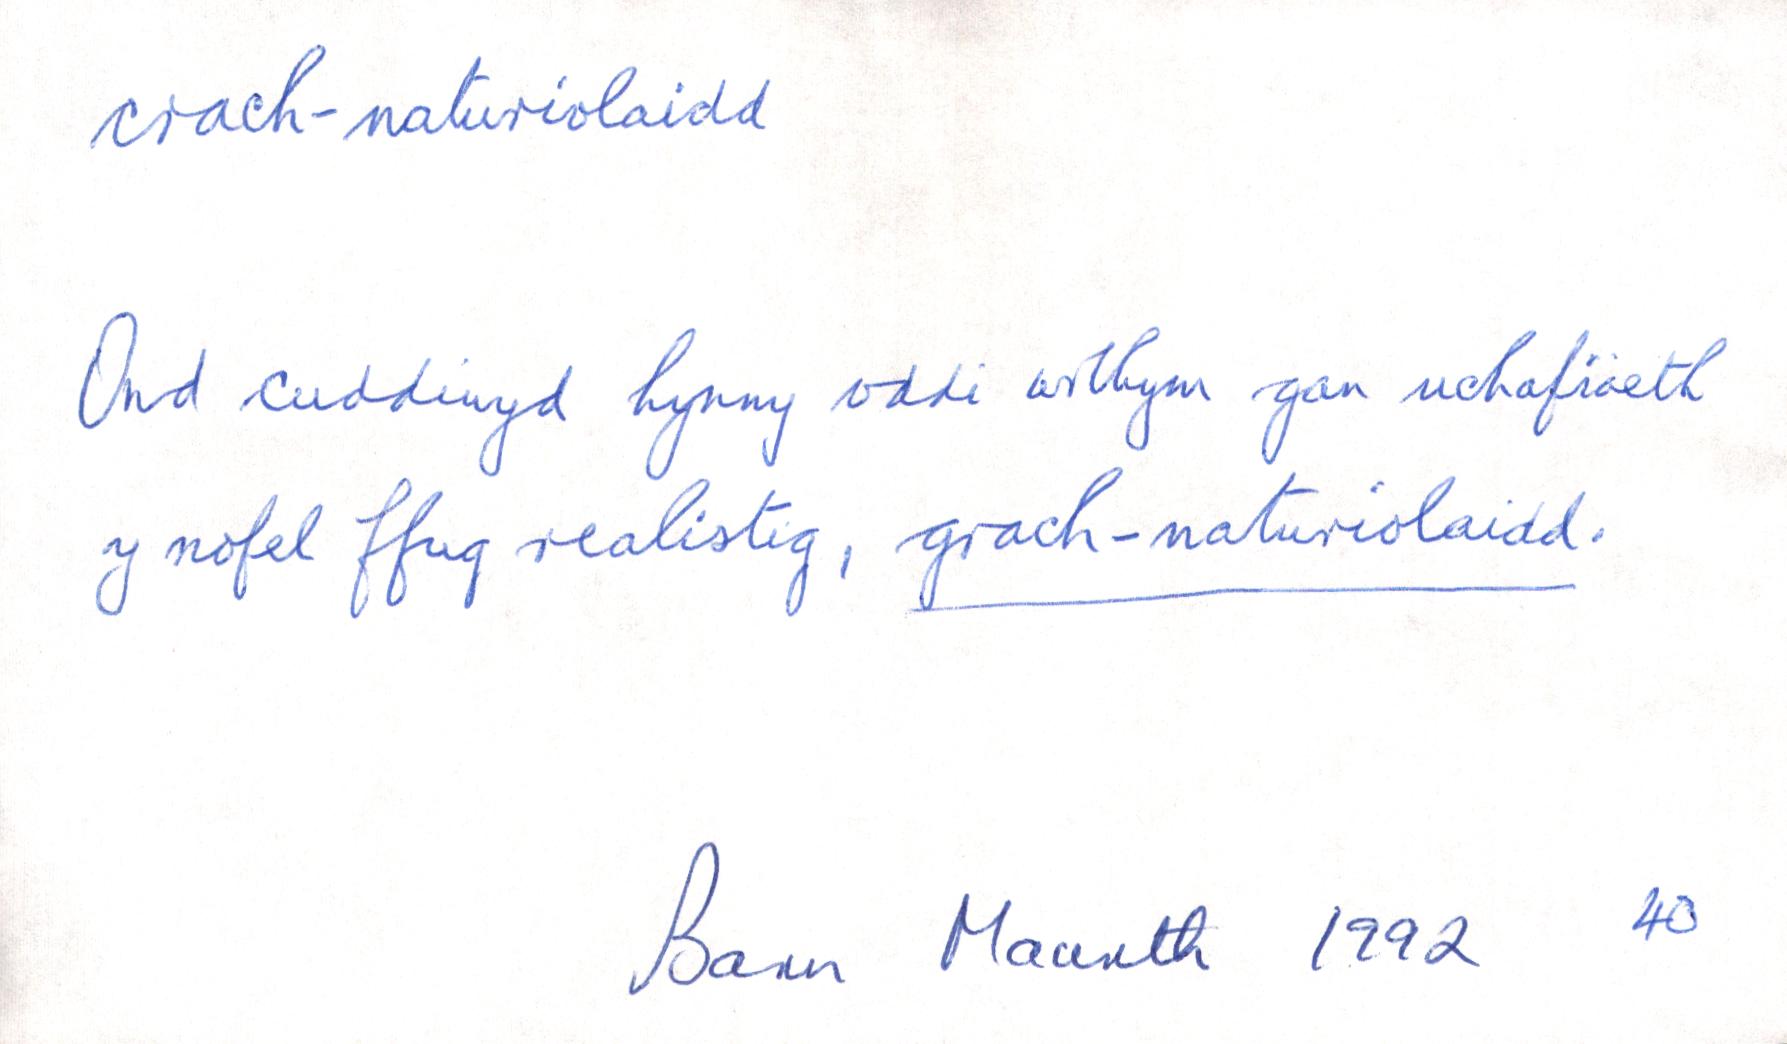 crach-naturiolaidd
Ond cuddiwyd hynny oddi wrthym gan uchafiaeth
y nofel ffug realistig, grach-naturiolaidd.
Barn Mawrth 1992 40